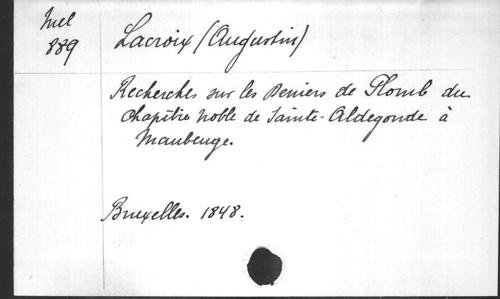 Mel
889
Lacroix (Augustin)
Recherches sur les Deniers de Plomb du
chapître noble de Sainte-Aldegonde à
Maubeuge.
Bruxelles. 1848.